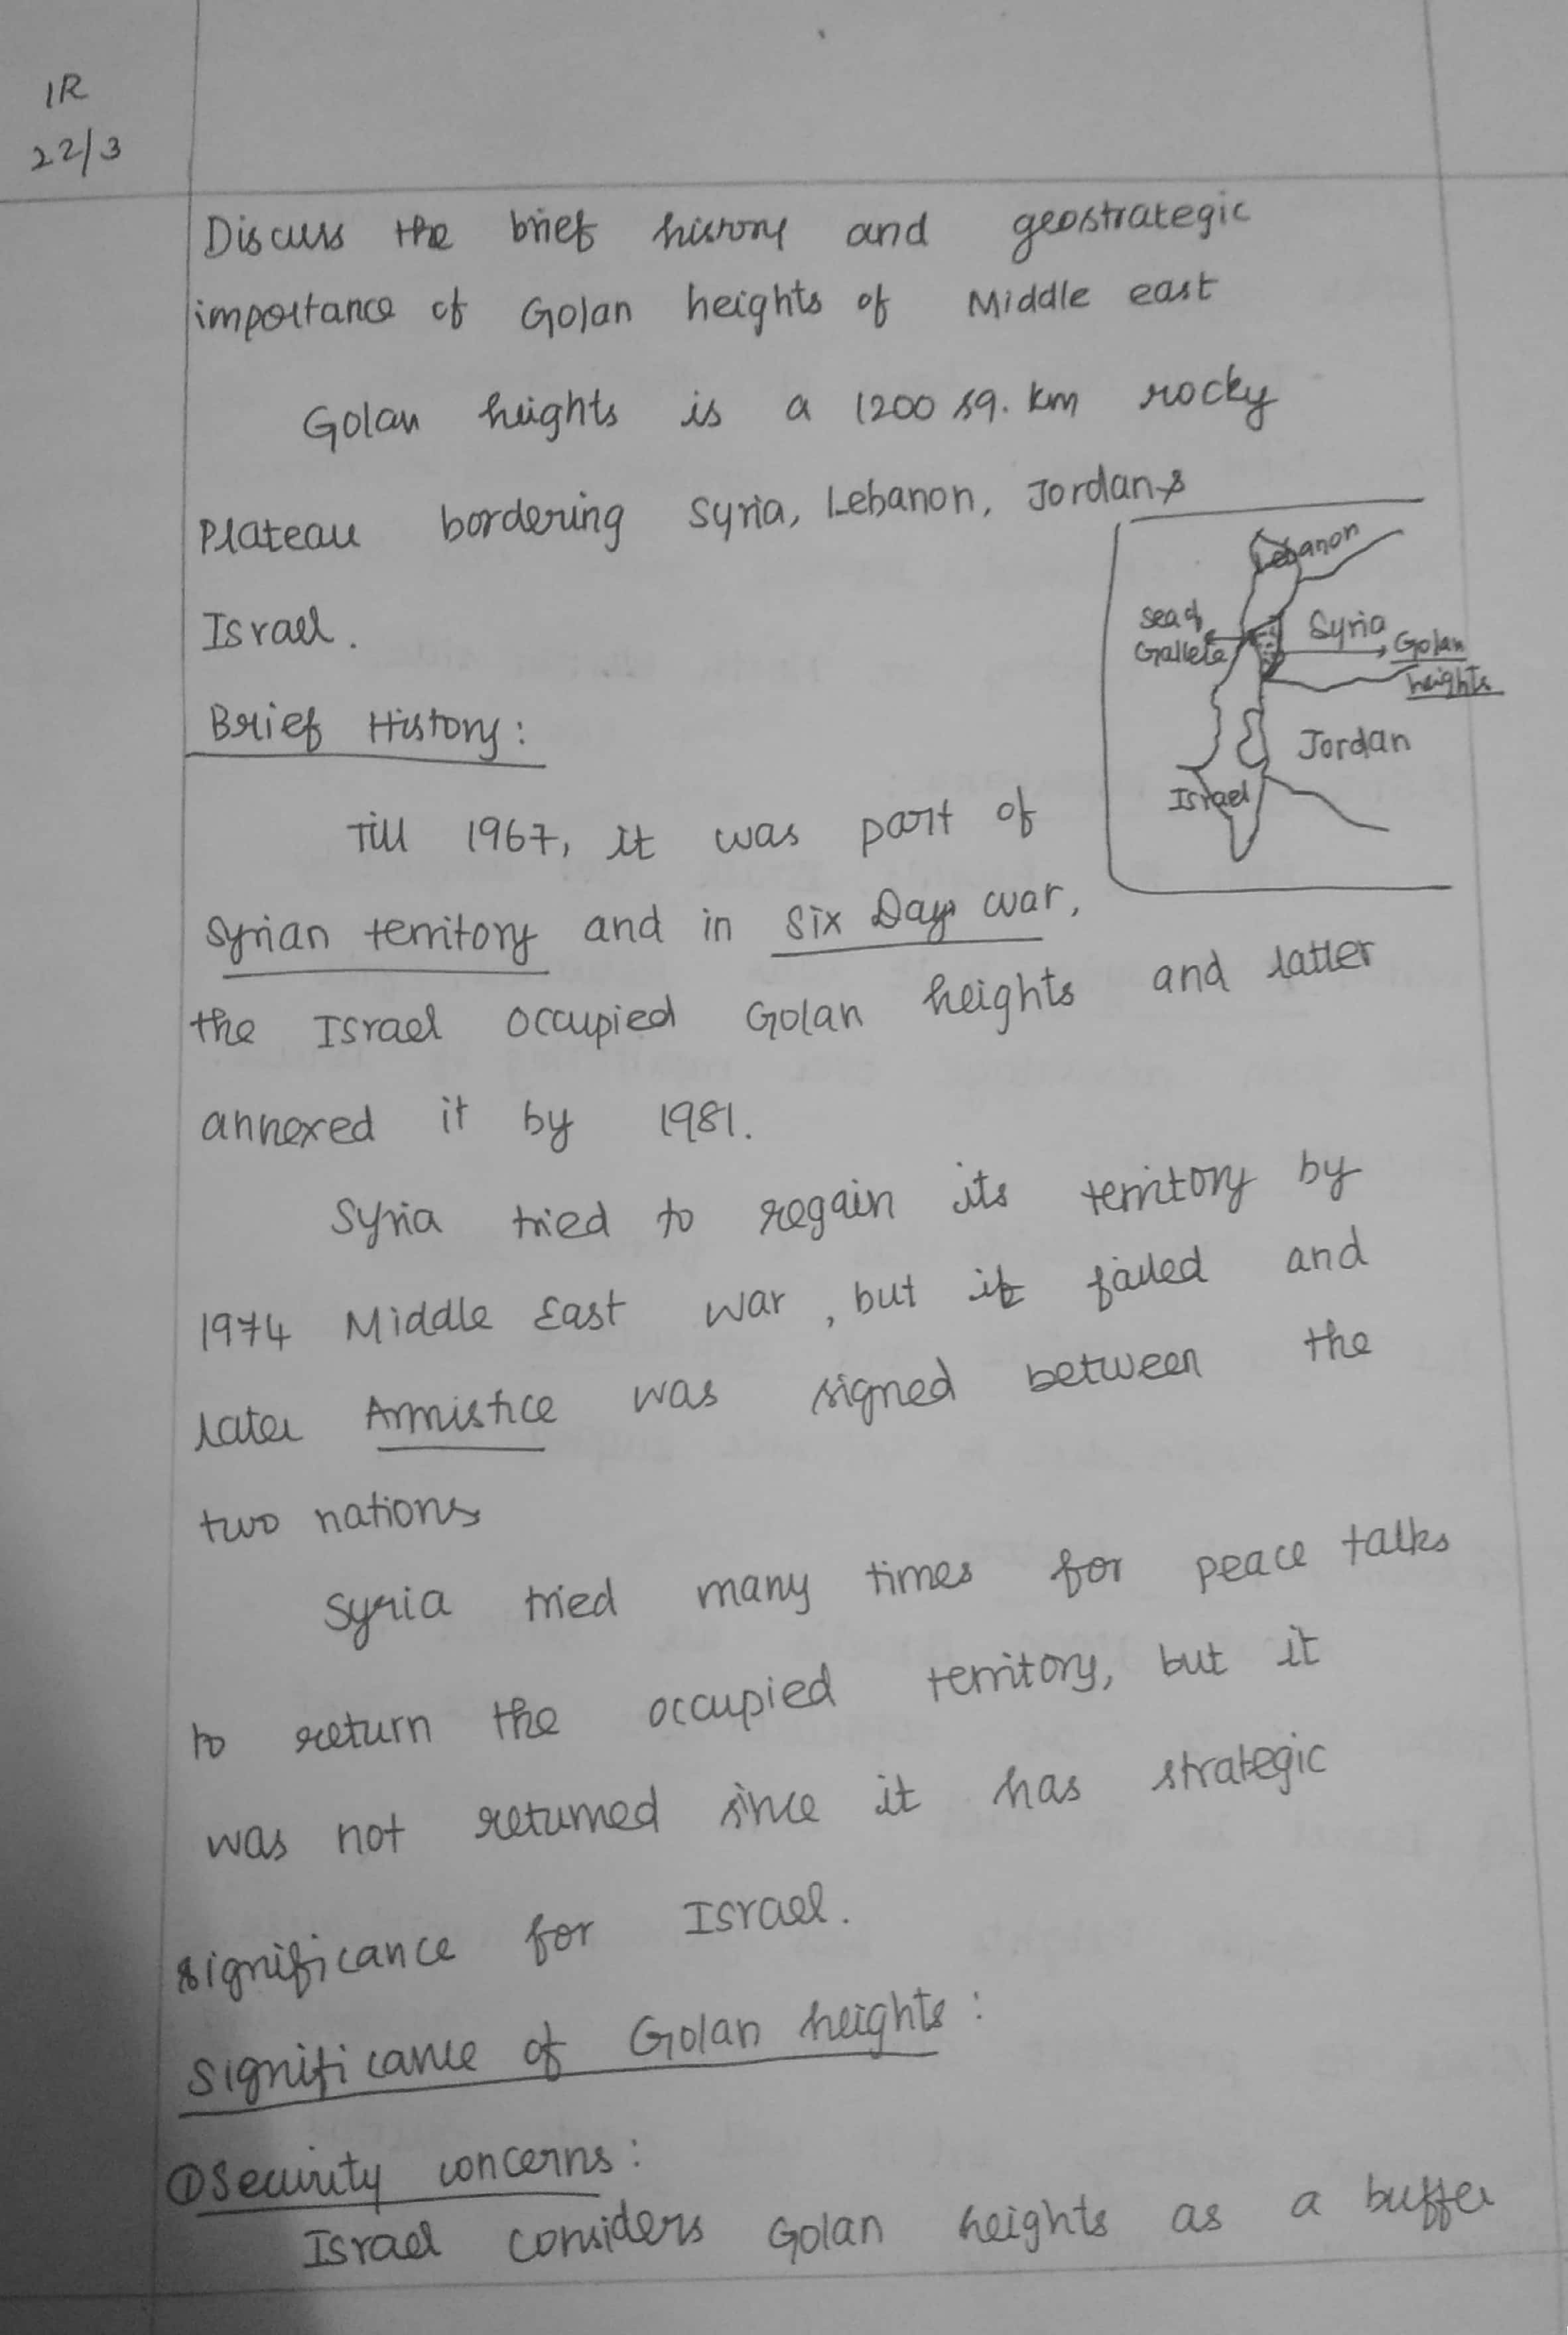 IR
22/3
Discuss the brief history and geostrategic
importance of Golan heights of Middle east
Golan heights is a 1200 sq. km rocky
Plateau bordering Syria, Lebanon, Jordan &
Israel.
Lebanon
Sea of
Gallele
Syria
Golan
heights
Jordan
Israel
Brief History:
Till 1967, it was part of
Syrian territory and in Six Days war,
the Israel occupied Golan heights and latter
annexed it by 1981.
Syria tried to regain its territory by
1974 Middle East war, but it failed and
later Armistice was signed between the
two nations
Syria tried many times for peace talks
to return the occupied territory, but it
was not returned since it has strategic
significance for Israel.
Significance of Golan heights:
① Security concerns:
Israel considers Golan heights as a buffer